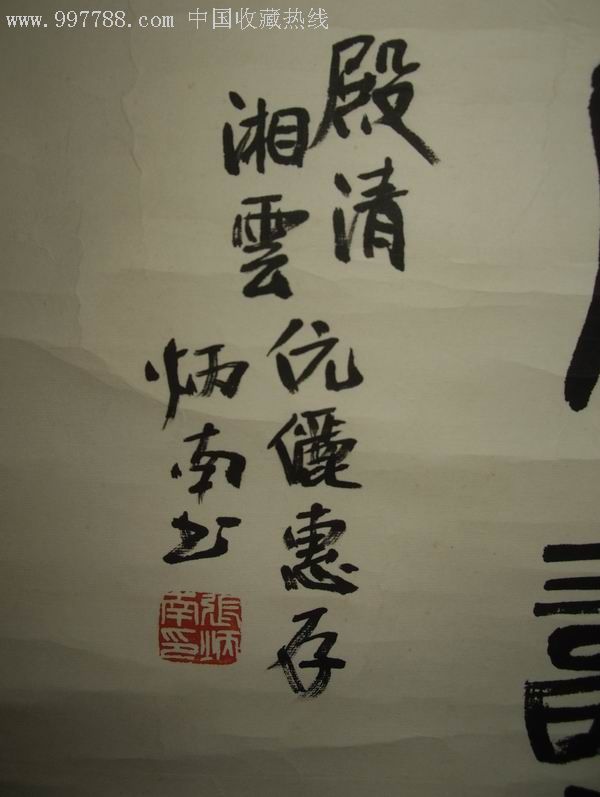 www.997788.com 中国收藏热线
殿清
湘雲
伉儷惠存
炳南书
張炳南印